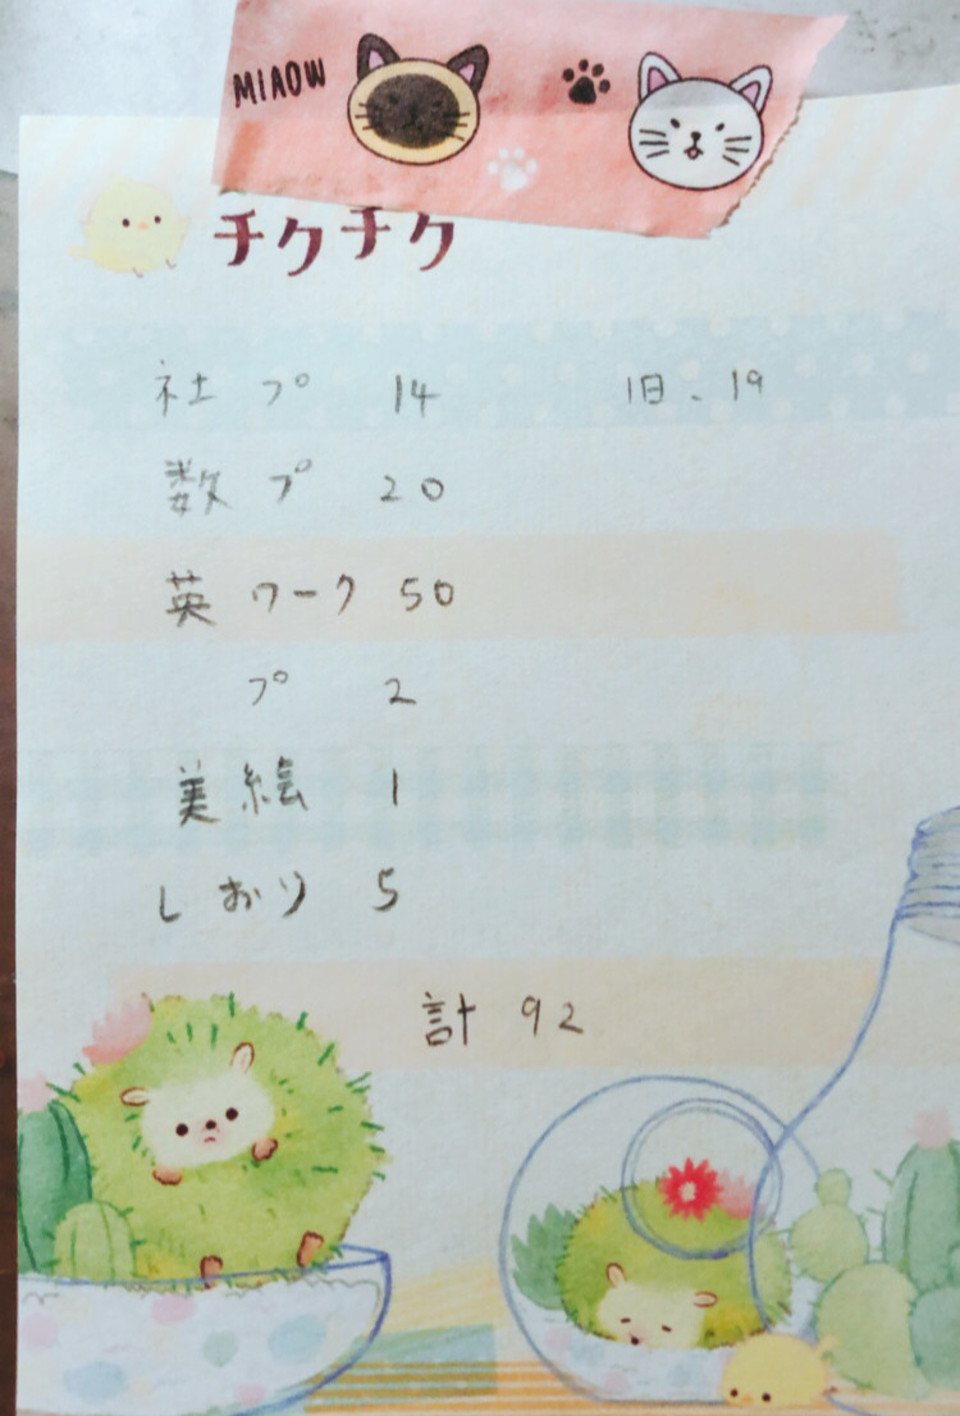 MIAOW
チクチク
社 プ 14 1日、19
数 プ 20
英 ワーク 50
プ 2
美 絵 1
しおり 5
計 92